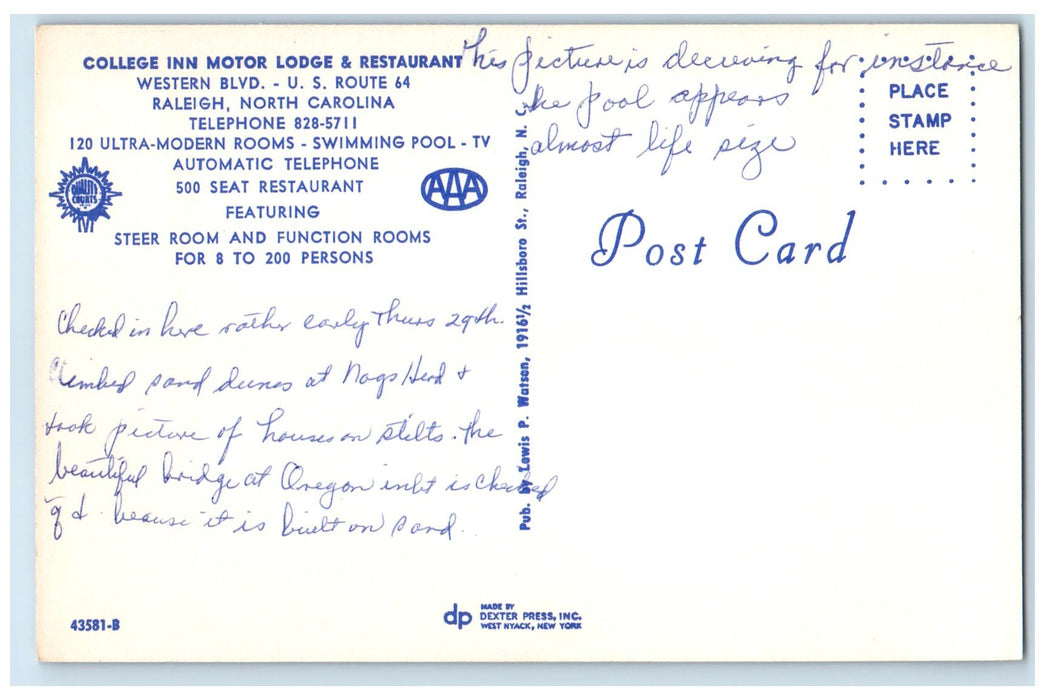 COLLEGE INN MOTOR LODGE & RESTAURANT
WESTERN BLVD. - U. S. ROUTE 64
RALEIGH, NORTH CAROLINA
TELEPHONE 828-5711
120 ULTRA-MODERN ROOMS - SWIMMING POOL - TV
AUTOMATIC TELEPHONE
500 SEAT RESTAURANT
FEATURING
STEER ROOM AND FUNCTION ROOMS
FOR 8 TO 200 PERSONS
QUALITY
COURTS
AAA
Checked in here rather early Thurs 29th.
Climbed sand dunes at Nags Head &
took picture of houses on stilts. The
beautiful bridge at Oregon inlet is checked
q d. because it is built on sand.
43581-B
Pub. by Lewis P. Watson, 1916½ Hillsboro St., Raleigh, N. C.
dp
MADE BY
DEXTER PRESS, INC.
WEST NYACK, NEW YORK
This picture is deceiving for instance
the pool appears
almost life size
PLACE
STAMP
HERE
Post Card